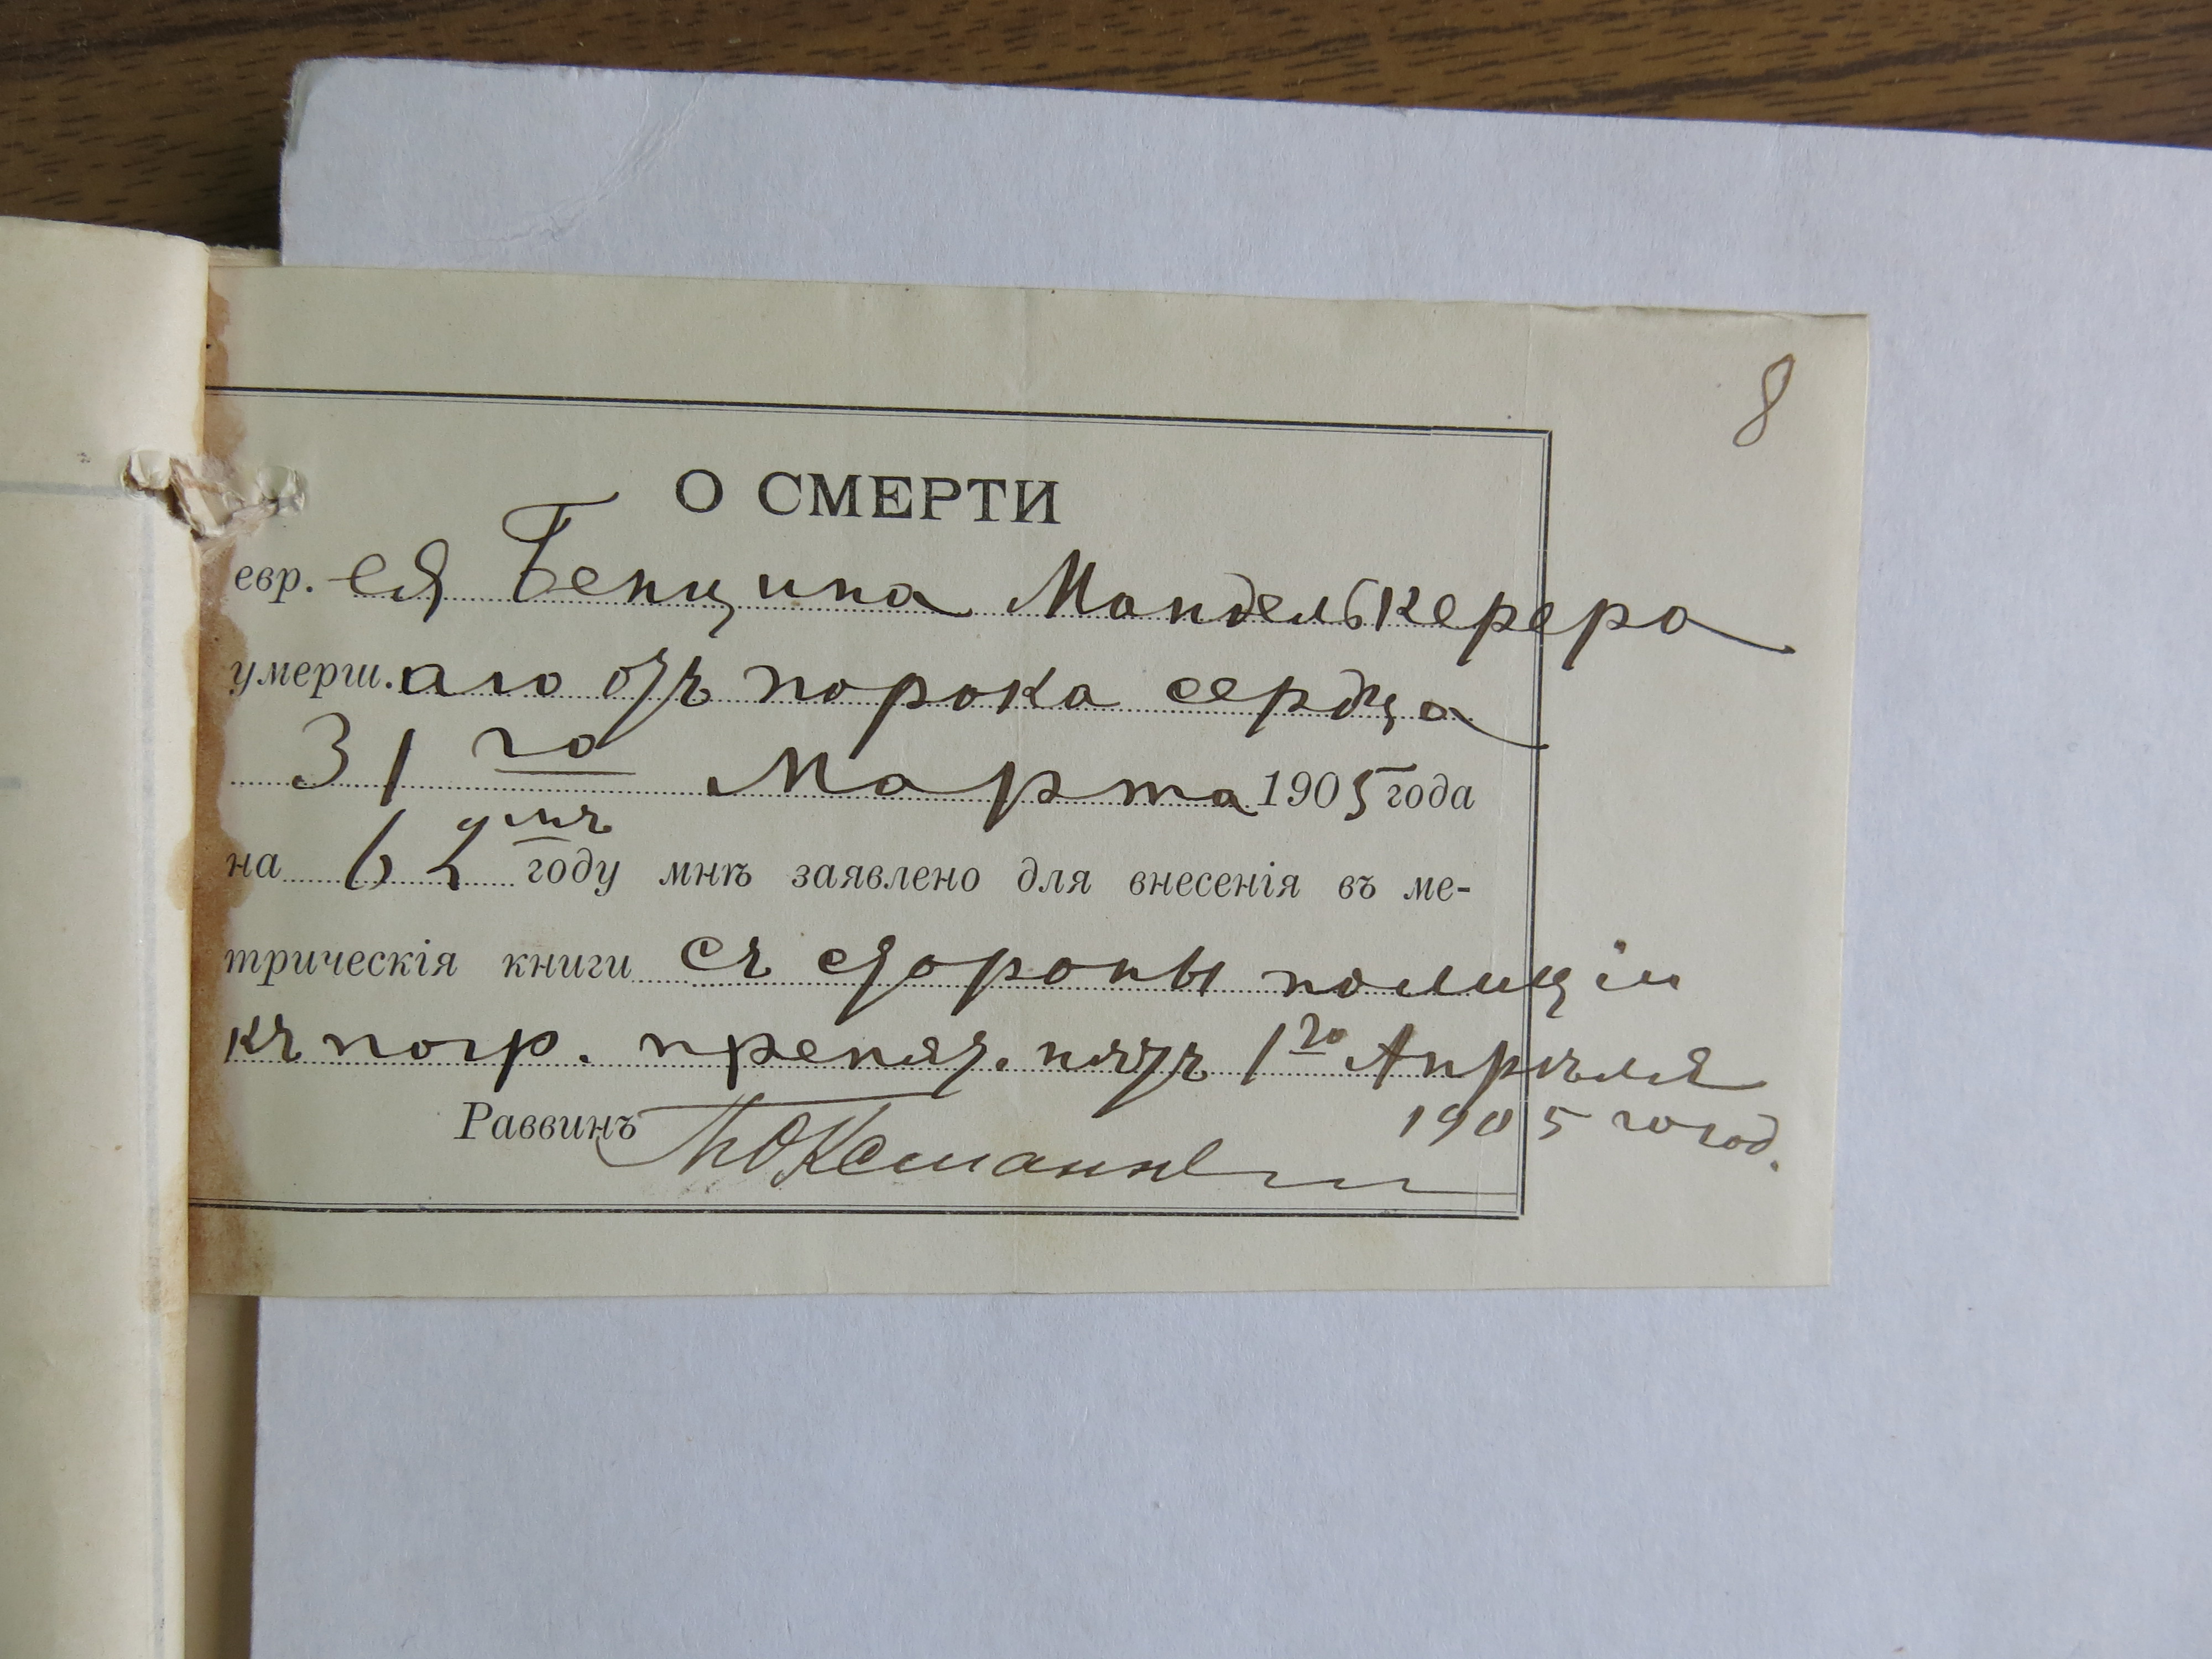 8
О СМЕРТИ
евр. ея Бенциna Манделькерера
умерш. аго отъ порока сердца
31 го Марта 1905 года
на 62 омъ году мнѣ заявлено для внесенія въ ме-
трическія книги съ стороны полиціи
къ погр. препят. нѣтъ 1го Апрѣля
1905 го год.
Раввинъ